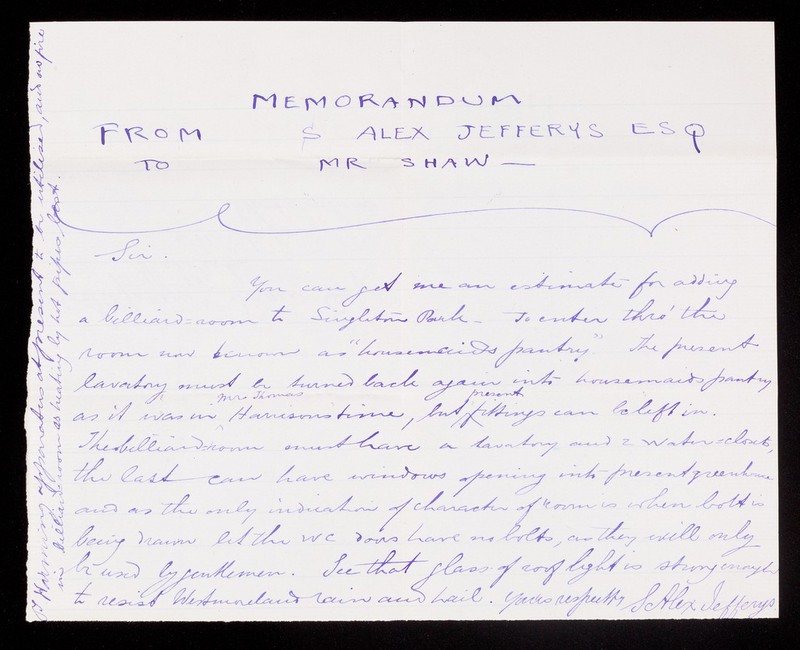 MEMORANDUM
FROM S ALEX JEFFERYS ESQ
TO MR SHAW —
Sir.
You can get me an estimate for adding
a billiard=room to Singleton Park – To enter thro' the
room now known as "housemaids pantry" The present
lavatory must be turned back again into housemaids pantry
as it was in Mr Thomas Harrisons time, but present fittings can be left in.
The billiard room must have a lavatory and 2 water=closets,
the last can have windows opening into present greenhouse
and as the only indication of character of room is when bolt is
being drawn let the WC doors have no bolts, as they will only
be used by gentlemen. See that glass of roof light is strong enough
to resist Westmoreland rain and hail. Yours respectly S Alex Jefferys
Warming apparatus at present to be utilised, and no fire
in billiard room as heating by hot pipes,